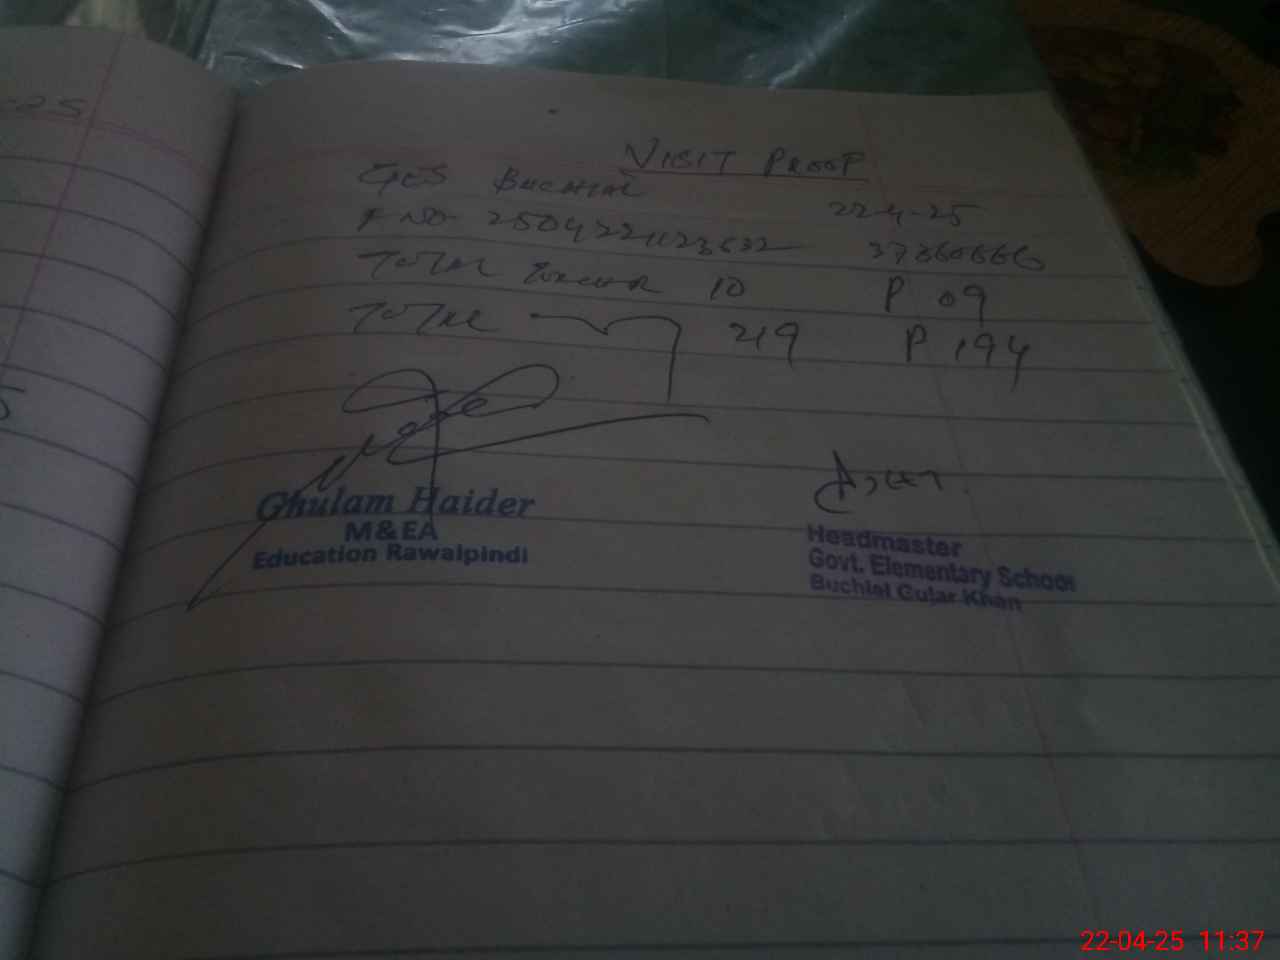 VISIT PROOF
GES BUCHIAL 22-4-25
F NO 37360666
TOTAL TEACHER 10 P 09
TOTAL 219 P 194
Ghulam Haider
M&EA
Education Rawalpindi
Headmaster
Govt. Elementary School
Buchial Gujar Khan
22-04-25 11:37